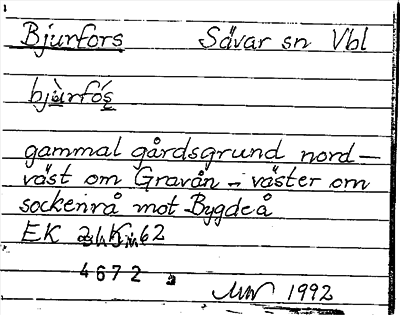 Bjurfors Sävar sn Vbl
bjùrfó̀s
gammal gårdsgrund nord-
väst om Gravån - väster om
sockenrå mot Bygdeå
EK 21 K 62
4672
1992